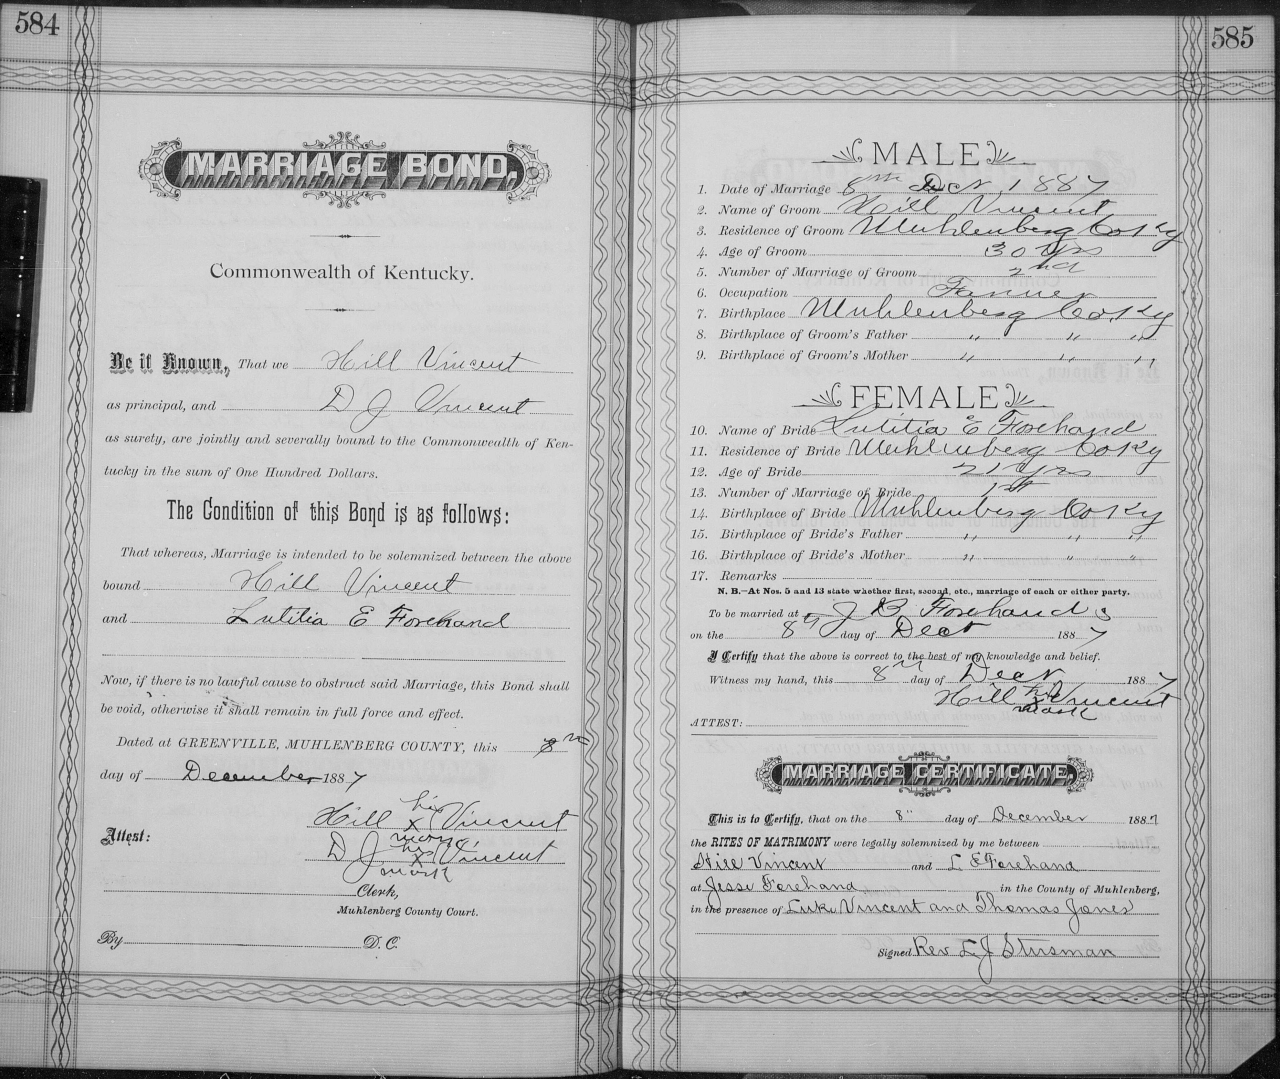 584
MARRIAGE BOND.
Commonwealth of Kentucky.
Be it Known, That we Hill Vincent
as principal, and D J Vincent
as surety, are jointly and severally bound to the Commonwealth of Ken-
tucky in the sum of One Hundred Dollars.
The Condition of this Bond is as follows:
That whereas, Marriage is intended to be solemnized between the above
bound Hill Vincent
and Lutitia E Forehand
Now, if there is no lawful cause to obstruct said Marriage, this Bond shall
be void, otherwise it shall remain in full force and effect.
Dated at GREENVILLE, MUHLENBERG COUNTY, this 8th
day of December 1887
Hill his X mark Vincent
Attest:
D J his X mark Vincent
Clerk,
Muhlenberg County Court.
By D. C.
585
MALE
1. Date of Marriage 8th Dec 1887
2. Name of Groom Hill Vincent
3. Residence of Groom Muhlenberg Co Ky
4. Age of Groom 30 yrs
5. Number of Marriage of Groom 2nd
6. Occupation Farmer
7. Birthplace Muhlenberg Co. Ky
8. Birthplace of Groom's Father " " "
9. Birthplace of Groom's Mother " " "
FEMALE
10. Name of Bride Lutitia E Forehand
11. Residence of Bride Muhlenberg Co Ky
12. Age of Bride 21 yrs
13. Number of Marriage of Bride 1st
14. Birthplace of Bride Muhlenberg Co Ky
15. Birthplace of Bride's Father " " "
16. Birthplace of Bride's Mother " " "
17. Remarks
N. B.—At Nos. 5 and 13 state whether first, second, etc., marriage of each or either party.
To be married at J B Forehands
on the 8th day of Dec 1887
I Certify that the above is correct to the best of my knowledge and belief.
Witness my hand, this 8th day of Dec 1887
Hill his X mark Vincent
ATTEST:
MARRIAGE CERTIFICATE.
This is to Certify, that on the 8" day of December 1887
the RITES OF MATRIMONY were legally solemnized by me between
Hill Vincent and L. E Forehand
at Jesse Forehand in the County of Muhlenberg,
in the presence of Luke Vincent and Thomas Jones
Signed Rev L J